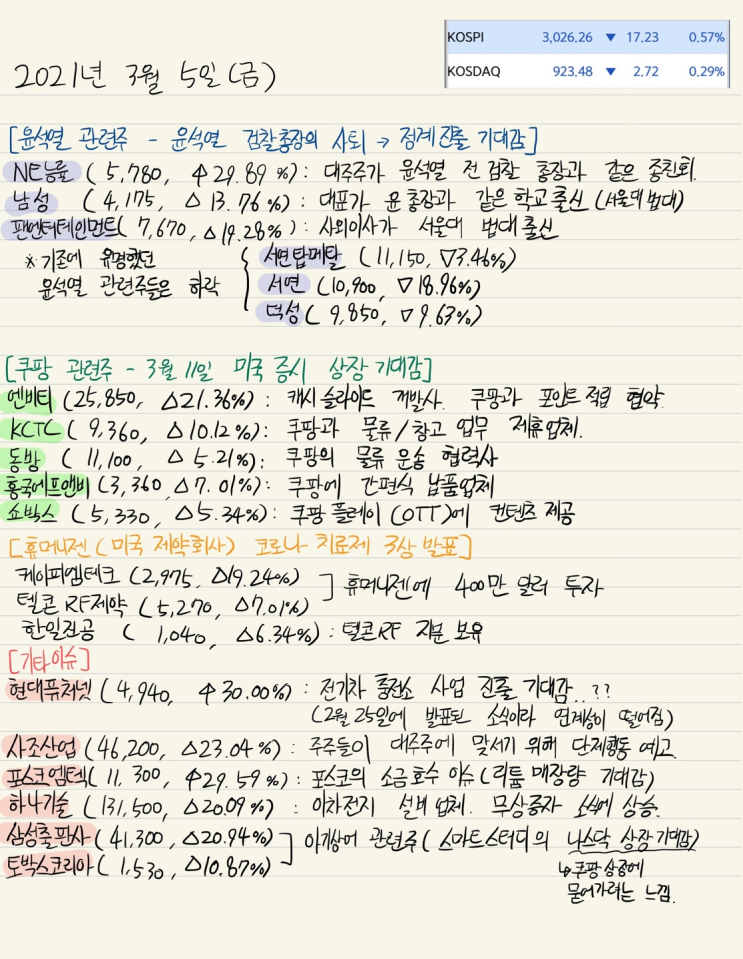 KOSPI 3,026.26 ▼ 17.23 0.57%
KOSDAQ 923.48 ▼ 2.72 0.29%
2021년 3월 5일(금)
[윤석열 관련주 - 윤석열 검찰총장의 사퇴 → 정계 진출 기대감]
NE능률 ( 5,780, ↑29.89 %) : 대주주가 윤석열 전 검찰 총장과 같은 종친회.
남성 ( 4,175, △ 13.76 %) : 대표가 윤 총장과 같은 학교 출신 (서울대 법대)
팬엔터테인먼트( 7,670, △19.28% ) : 사외이사가 서울대 법대 출신
※ 기존에 유명했던
윤석열 관련주들은 하락
서연탑메탈 (11,150, ▽3.46%)
서연 (10,900, ▽18.96%)
덕성 ( 9,850, ▽9.63%)
[쿠팡 관련주 - 3월 11일 미국 증시 상장 기대감]
엔비티 (25,850, △21.36%) : 캐시 슬라이드 개발사. 쿠팡과 포인트 적립 협약.
KCTC ( 9,360, △10.12%) : 쿠팡과 물류/창고 업무 제휴업체.
동방 ( 11,100, △ 5.21%) : 쿠팡의 물류 운송 협력사
흥국에프엔비 (3,360, △7.01%) : 쿠팡에 간편식 납품업체
쇼박스 ( 5,330, △5.34%) : 쿠팡 플레이 (OTT)에 컨텐츠 제공
[휴머니젠 (미국 제약회사) 코로나 치료제 3상 발표]
케이피엠테크 (2,975, △19.24%)
휴머니젠에 400만 달러 투자
텔콘 RF제약 (5,270, △7.01%)
한일진공 ( 1,040, △6.34%) : 텔콘RF 지분 보유
[기타이슈]
현대퓨처넷 ( 4,940, ↑30.00%) : 전기차 충전소 사업 진출 기대감..??
(2월 25일에 발표된 소식이라 연계성이 떨어짐)
사조산업 (46,200, △23.04%) : 주주들이 대주주에 맞서기 위해 단체행동 예고.
포스코엠텍( 11,300, ↑29.59%) : 포스코의 소금호수 이슈 (리튬 매장량 기대감)
하나기술 (131,500, △20.09%) : 이차전지 설비 업체. 무상증자 소식에 상승.
삼성출판사 (41,300, △20.94%)
아기상어 관련주 ( 스마트스터디의 나스닥 상장 기대감)
토박스코리아( 1,530, △10.87%)
↳ 쿠팡 상장에
묻어가려는 느낌.